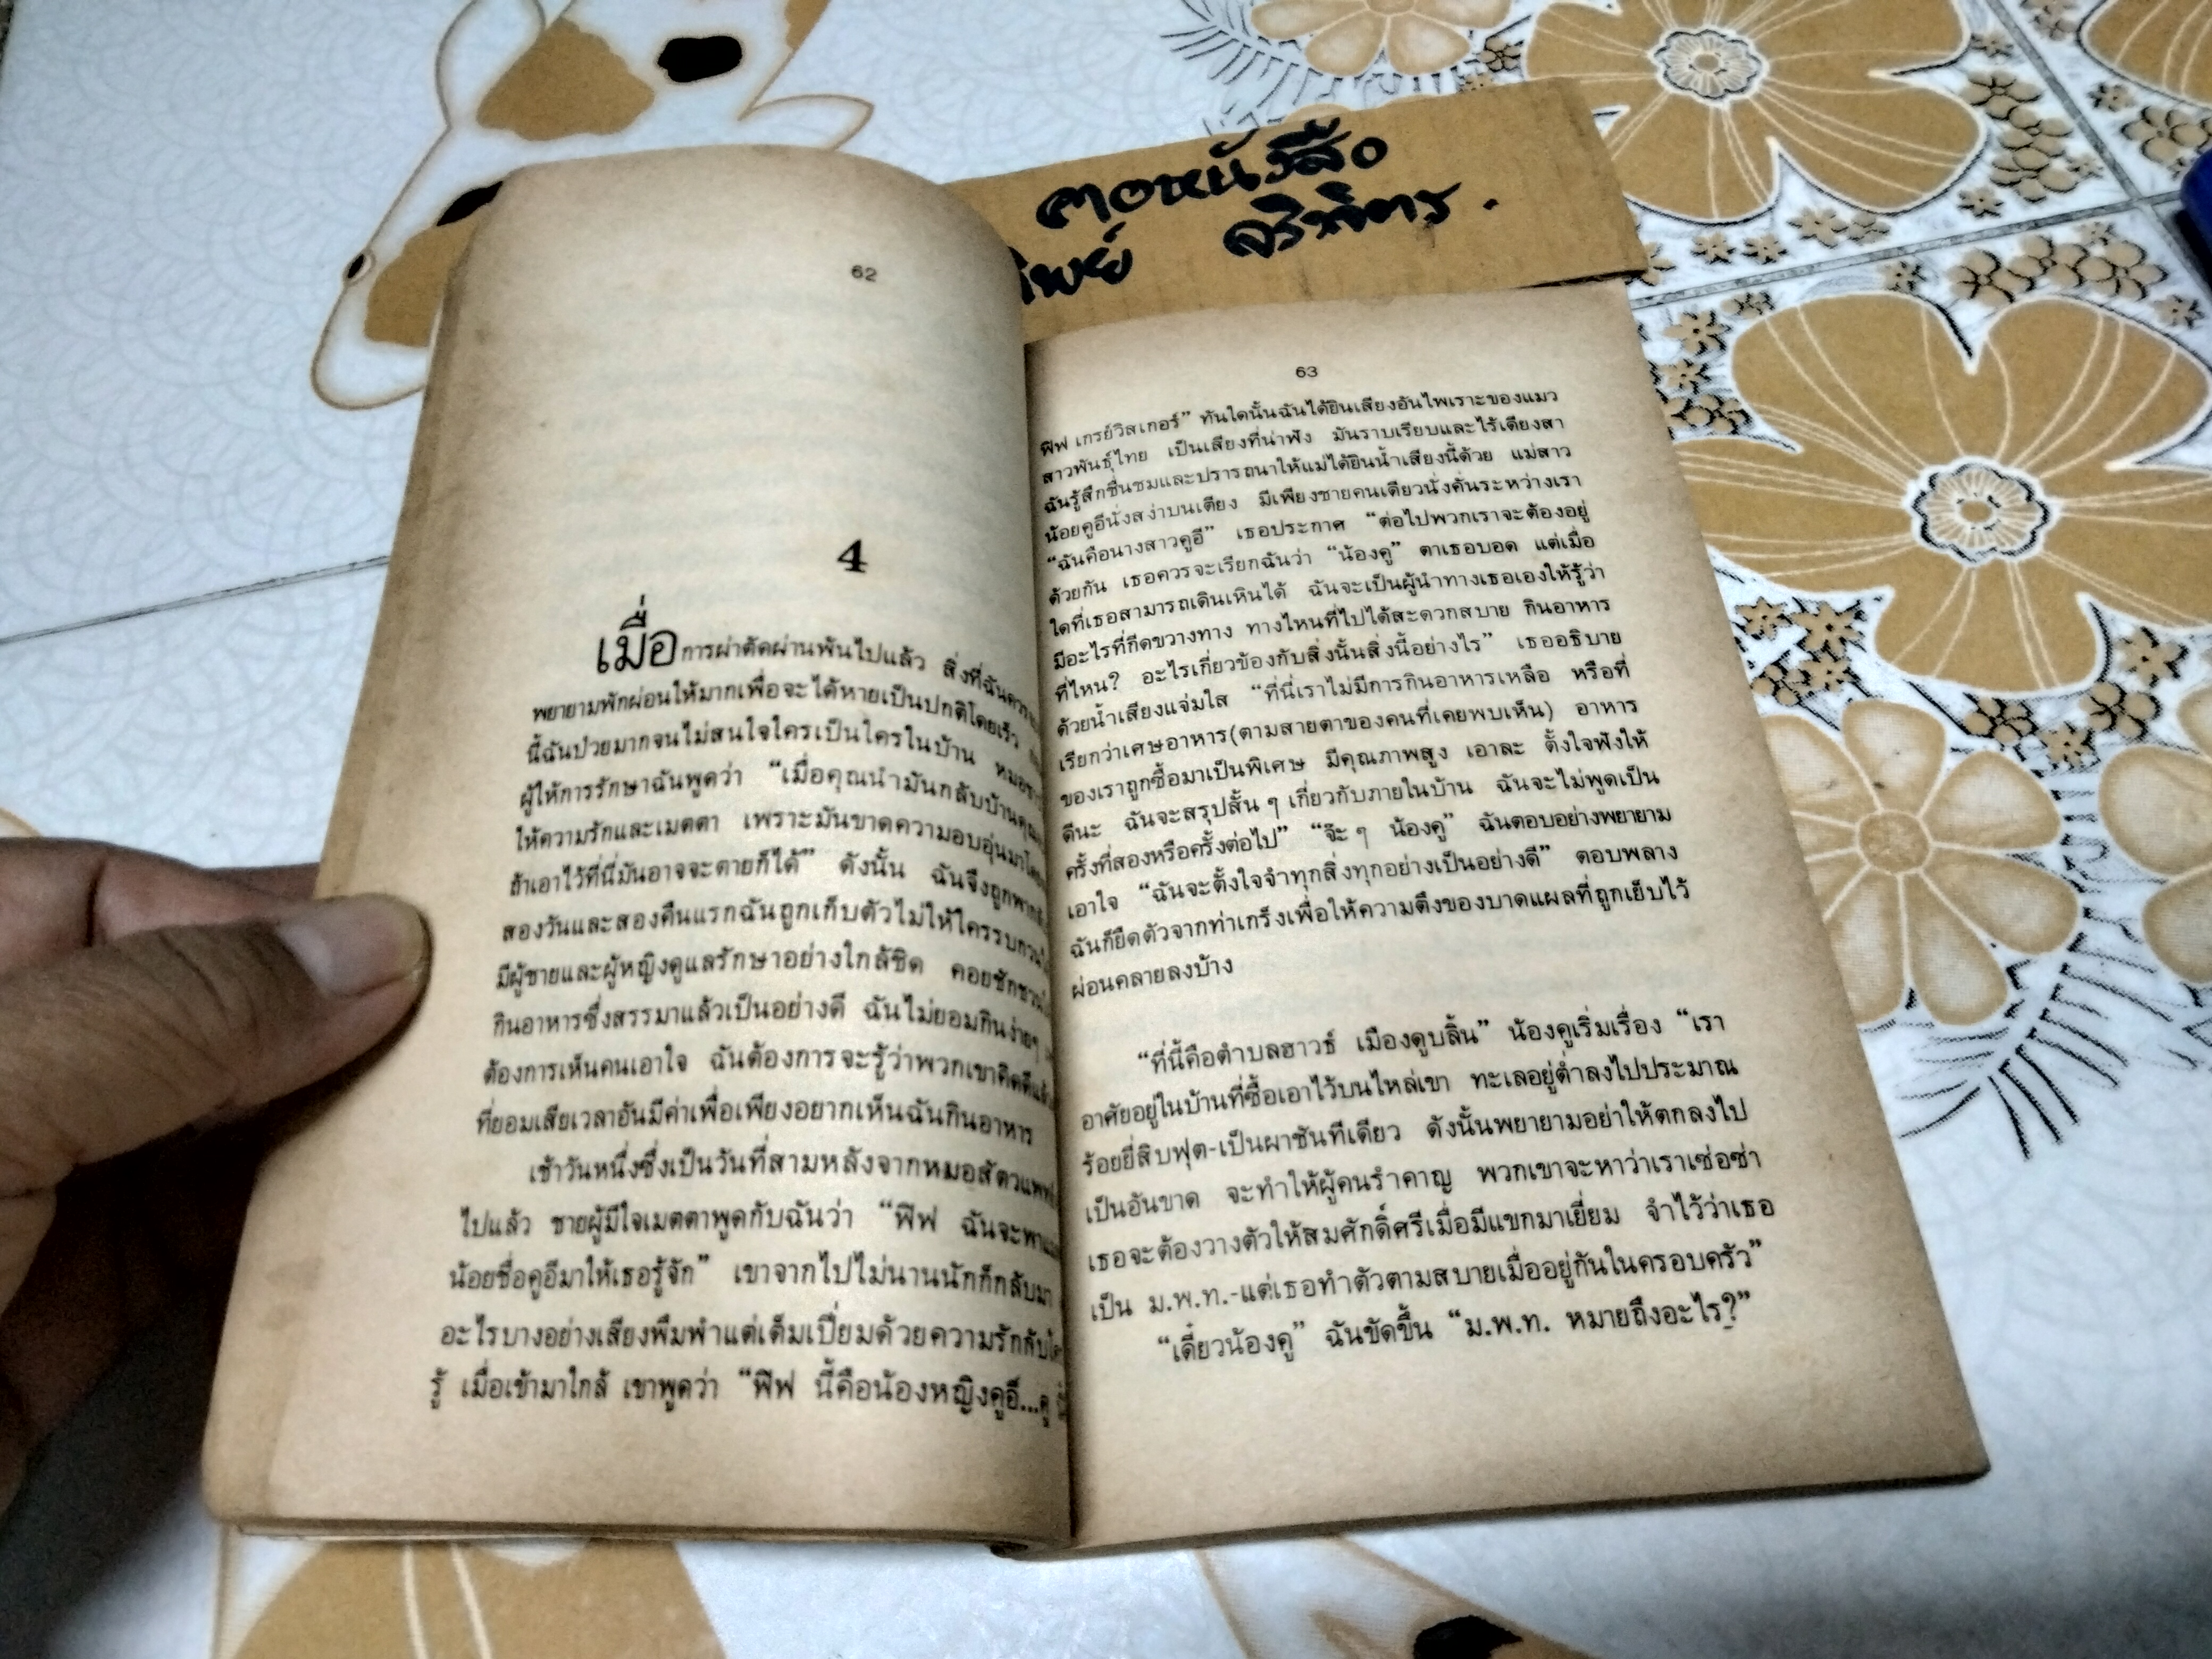 คอหนังสือ
ทิพย์ จริพิตร.
62
4
เมื่อการผ่าตัดผ่านพ้นไปแล้ว สิ่งที่ฉันควร
พยายามพักผ่อนให้มากเพื่อจะได้หายเป็นปกติโดยเร็ว
นี้ฉันป่วยมากจนไม่สนใจใครเป็นใครในบ้าน
ผู้ให้การรักษาฉันพูดว่า “เมื่อคุณนำมันกลับบ้าน
ให้ความรักและเมตตา เพราะมันขาดความอบอุ่นมา
ถ้าเอาไว้ที่นี่มันอาจจะตายก็ได้” ดังนั้น ฉันจึงถูก
สองวันและสองคืนแรกฉันถูกเก็บตัวไม่ให้ใครรบกวน
มีผู้ชายและผู้หญิงดูแลรักษาอย่างใกล้ชิด คอยชักชวน
กินอาหารซึ่งสรรมาแล้วเป็นอย่างดี ฉันไม่ยอมกินง่ายๆ
ต้องการเห็นคนเอาใจ ฉันต้องการจะรู้ว่าพวกเขาคิดดีแล้ว
ที่ยอมเสียเวลาอันมีค่าเพื่อเพียงอยากเห็นฉันกินอาหาร
เช้าวันหนึ่งซึ่งเป็นวันที่สามหลังจากหมอสัตวแพทย์
ไปแล้ว ชายผู้มีใจเมตตาพูดกับฉันว่า “ฟิฟ ฉันจะพา
น้อยชื่อคูอีมาให้เธอรู้จัก” เขาจากไปไม่นานนักก็กลับมา
อะไรบางอย่างเสียงพึมพำแต่เต็มเปี่ยมด้วยความรัก
รู้ เมื่อเข้ามาใกล้ เขาพูดว่า “ฟิฟ นี้คือน้องหญิงคูอี...คู
63
ฟิฟ เกรย์วิสเกอร์” ทันใดนั้นฉันได้ยินเสียงอันไพเราะของแมว
สาวพันธุ์ไทย เป็นเสียงที่น่าฟัง มันราบเรียบและไร้เดียงสา
ฉันรู้สึกชื่นชมและปรารถนาให้แม่ได้ยินน้ำเสียงนี้ด้วย แม่สาว
น้อยคูอีนั่งสง่าบนเตียง มีเพียงชายคนเดียวนั่งคั่นระหว่างเรา
“ฉันคือนางสาวคูอี” เธอประกาศ “ต่อไปพวกเราจะต้องอยู่
ด้วยกัน เธอควรจะเรียกฉันว่า “น้องคู” ตาเธอบอด แต่เมื่อ
ใดที่เธอสามารถเดินเหินได้ ฉันจะเป็นผู้นำทางเธอเองให้รู้ว่า
มีอะไรที่กีดขวางทาง ทางไหนที่ไปได้สะดวกสบาย กินอาหาร
ที่ไหน? อะไรเกี่ยวข้องกับสิ่งนั้นสิ่งนี้อย่างไร” เธออธิบาย
ด้วยน้ำเสียงแจ่มใส “ที่นี่เราไม่มีการกินอาหารเหลือ หรือที่
เรียกว่าเศษอาหาร(ตามสายตาของคนที่เคยพบเห็น) อาหาร
ของเราถูกซื้อมาเป็นพิเศษ มีคุณภาพสูง เอาละ ตั้งใจฟังให้
ดีนะ ฉันจะสรุปสั้น ๆ เกี่ยวกับภายในบ้าน ฉันจะไม่พูดเป็น
ครั้งที่สองหรือครั้งต่อไป” “จ๊ะ ๆ น้องคู” ฉันตอบอย่างพยายาม
เอาใจ “ฉันจะตั้งใจจำทุกสิ่งทุกอย่างเป็นอย่างดี” ตอบพลาง
ฉันก็ยืดตัวจากท่าเกร็งเพื่อให้ความตึงของบาดแผลที่ถูกเย็บไว้
ผ่อนคลายลงบ้าง
“ที่นี้คือตำบลฮาวธ์ เมืองดูบลิ้น” น้องคูเริ่มเรื่อง “เรา
อาศัยอยู่ในบ้านที่ซื้อเอาไว้บนไหล่เขา ทะเลอยู่ต่ำลงไปประมาณ
ร้อยยี่สิบฟุต-เป็นผาชันทีเดียว ดังนั้นพยายามอย่าให้ตกลงไป
เป็นอันขาด จะทำให้ผู้คนรำคาญ พวกเขาจะหาว่าเราเซ่อซ่า
เธอจะต้องวางตัวให้สมศักดิ์ศรีเมื่อมีแขกมาเยี่ยม จำไว้ว่าเธอ
เป็น ม.พ.ท.-แต่เธอทำตัวตามสบายเมื่ออยู่กันในครอบครัว”
“เดี๋ยวน้องคู” ฉันขัดขึ้น “ม.พ.ท. หมายถึงอะไร?”